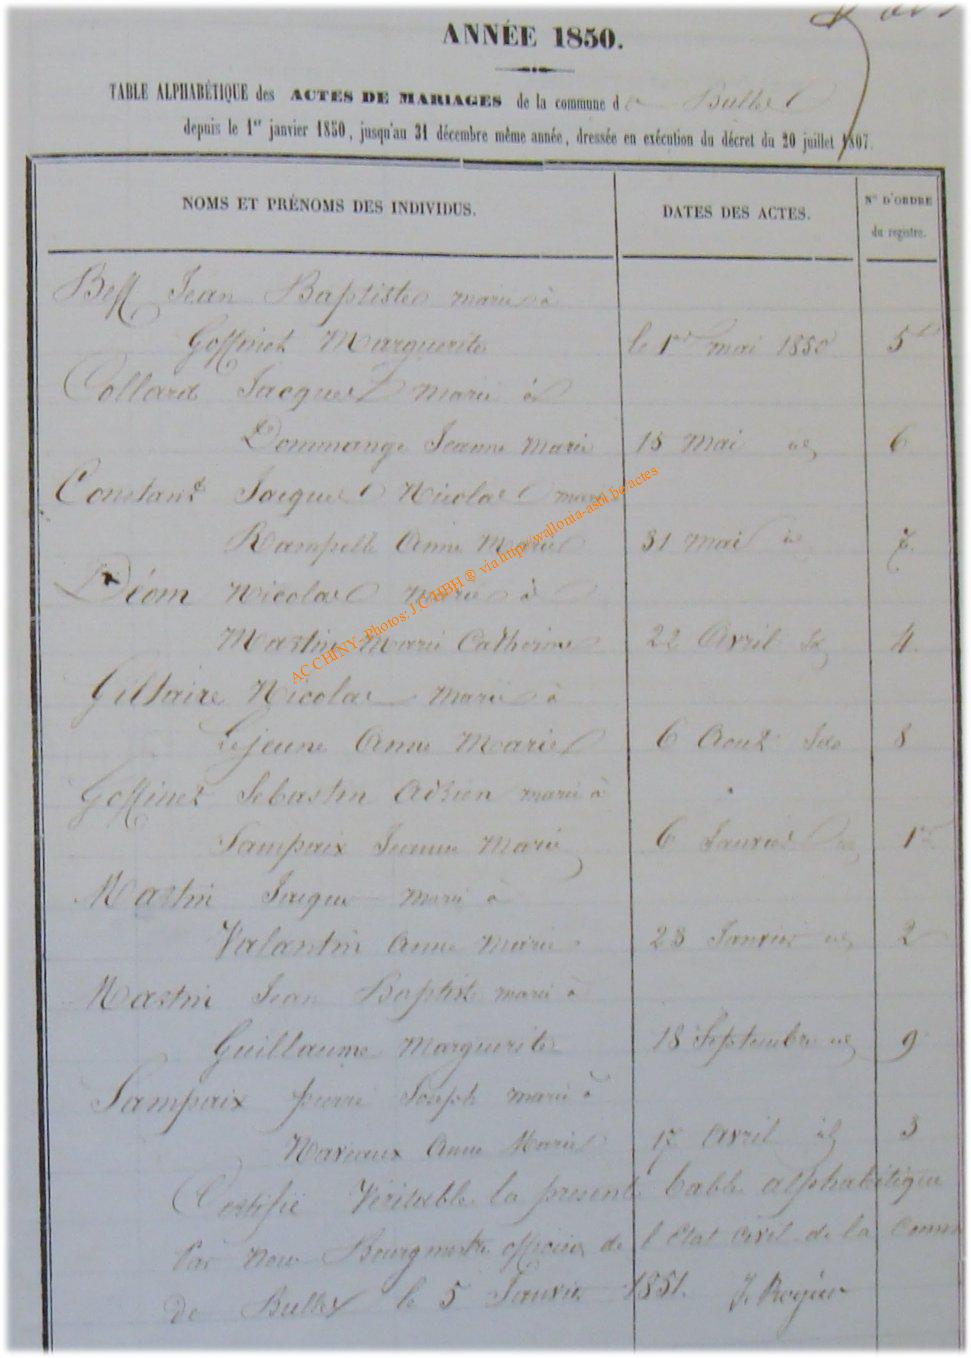 ANNÉE 1850.
TABLE ALPHABÉTIQUE des ACTES DE MARIAGES de la commune de Bulles
depuis le 1er janvier 1850, jusqu'au 31 décembre même année, dressée en exécution du décret du 20 juillet 1807.
NOMS ET PRÉNOMS DES INDIVIDUS. DATES DES ACTES. Nº D'ORDRE
du registre.
Jean Baptiste marié à
Goffinet Marguerite le 1er mai 1850 5
Collard Jacques marié à
Dommange Jeanne Marie 15 mai id 6
Constant Jacques Nicolas marié
Rampelle Anne Marie 31 mai id 7.
Déom Nicolas Marié à
Martin Marie Catherine 22 Avril Id 4.
Giltaire Nicolas marié à
Lejeune Anne Marie 6 Aout Ide 8
Goffinet Sebastin Adrien marié à
Sampaix Jeanne Marie 6 Janvier id 1er
Martin Jacque marié à
Valantin Anne Marie 23 Janvier id 2
Martin Jean Baptist marié à
Guillaume Marguerite 18 Septembre id 9
Sampaix pierre Joseph marié à
Naviaux Anne Marie 17 Avril id 3
Certifié Véritable la present table alphabétique
Par Nous Bourgmestre officier de l Etat civil de la Comm
De Bulles le 5 Janvier 1851. J. Rogier
AC CHINY - Photos: J.C.HBH ® via http://wallonia-asbl.be/actes